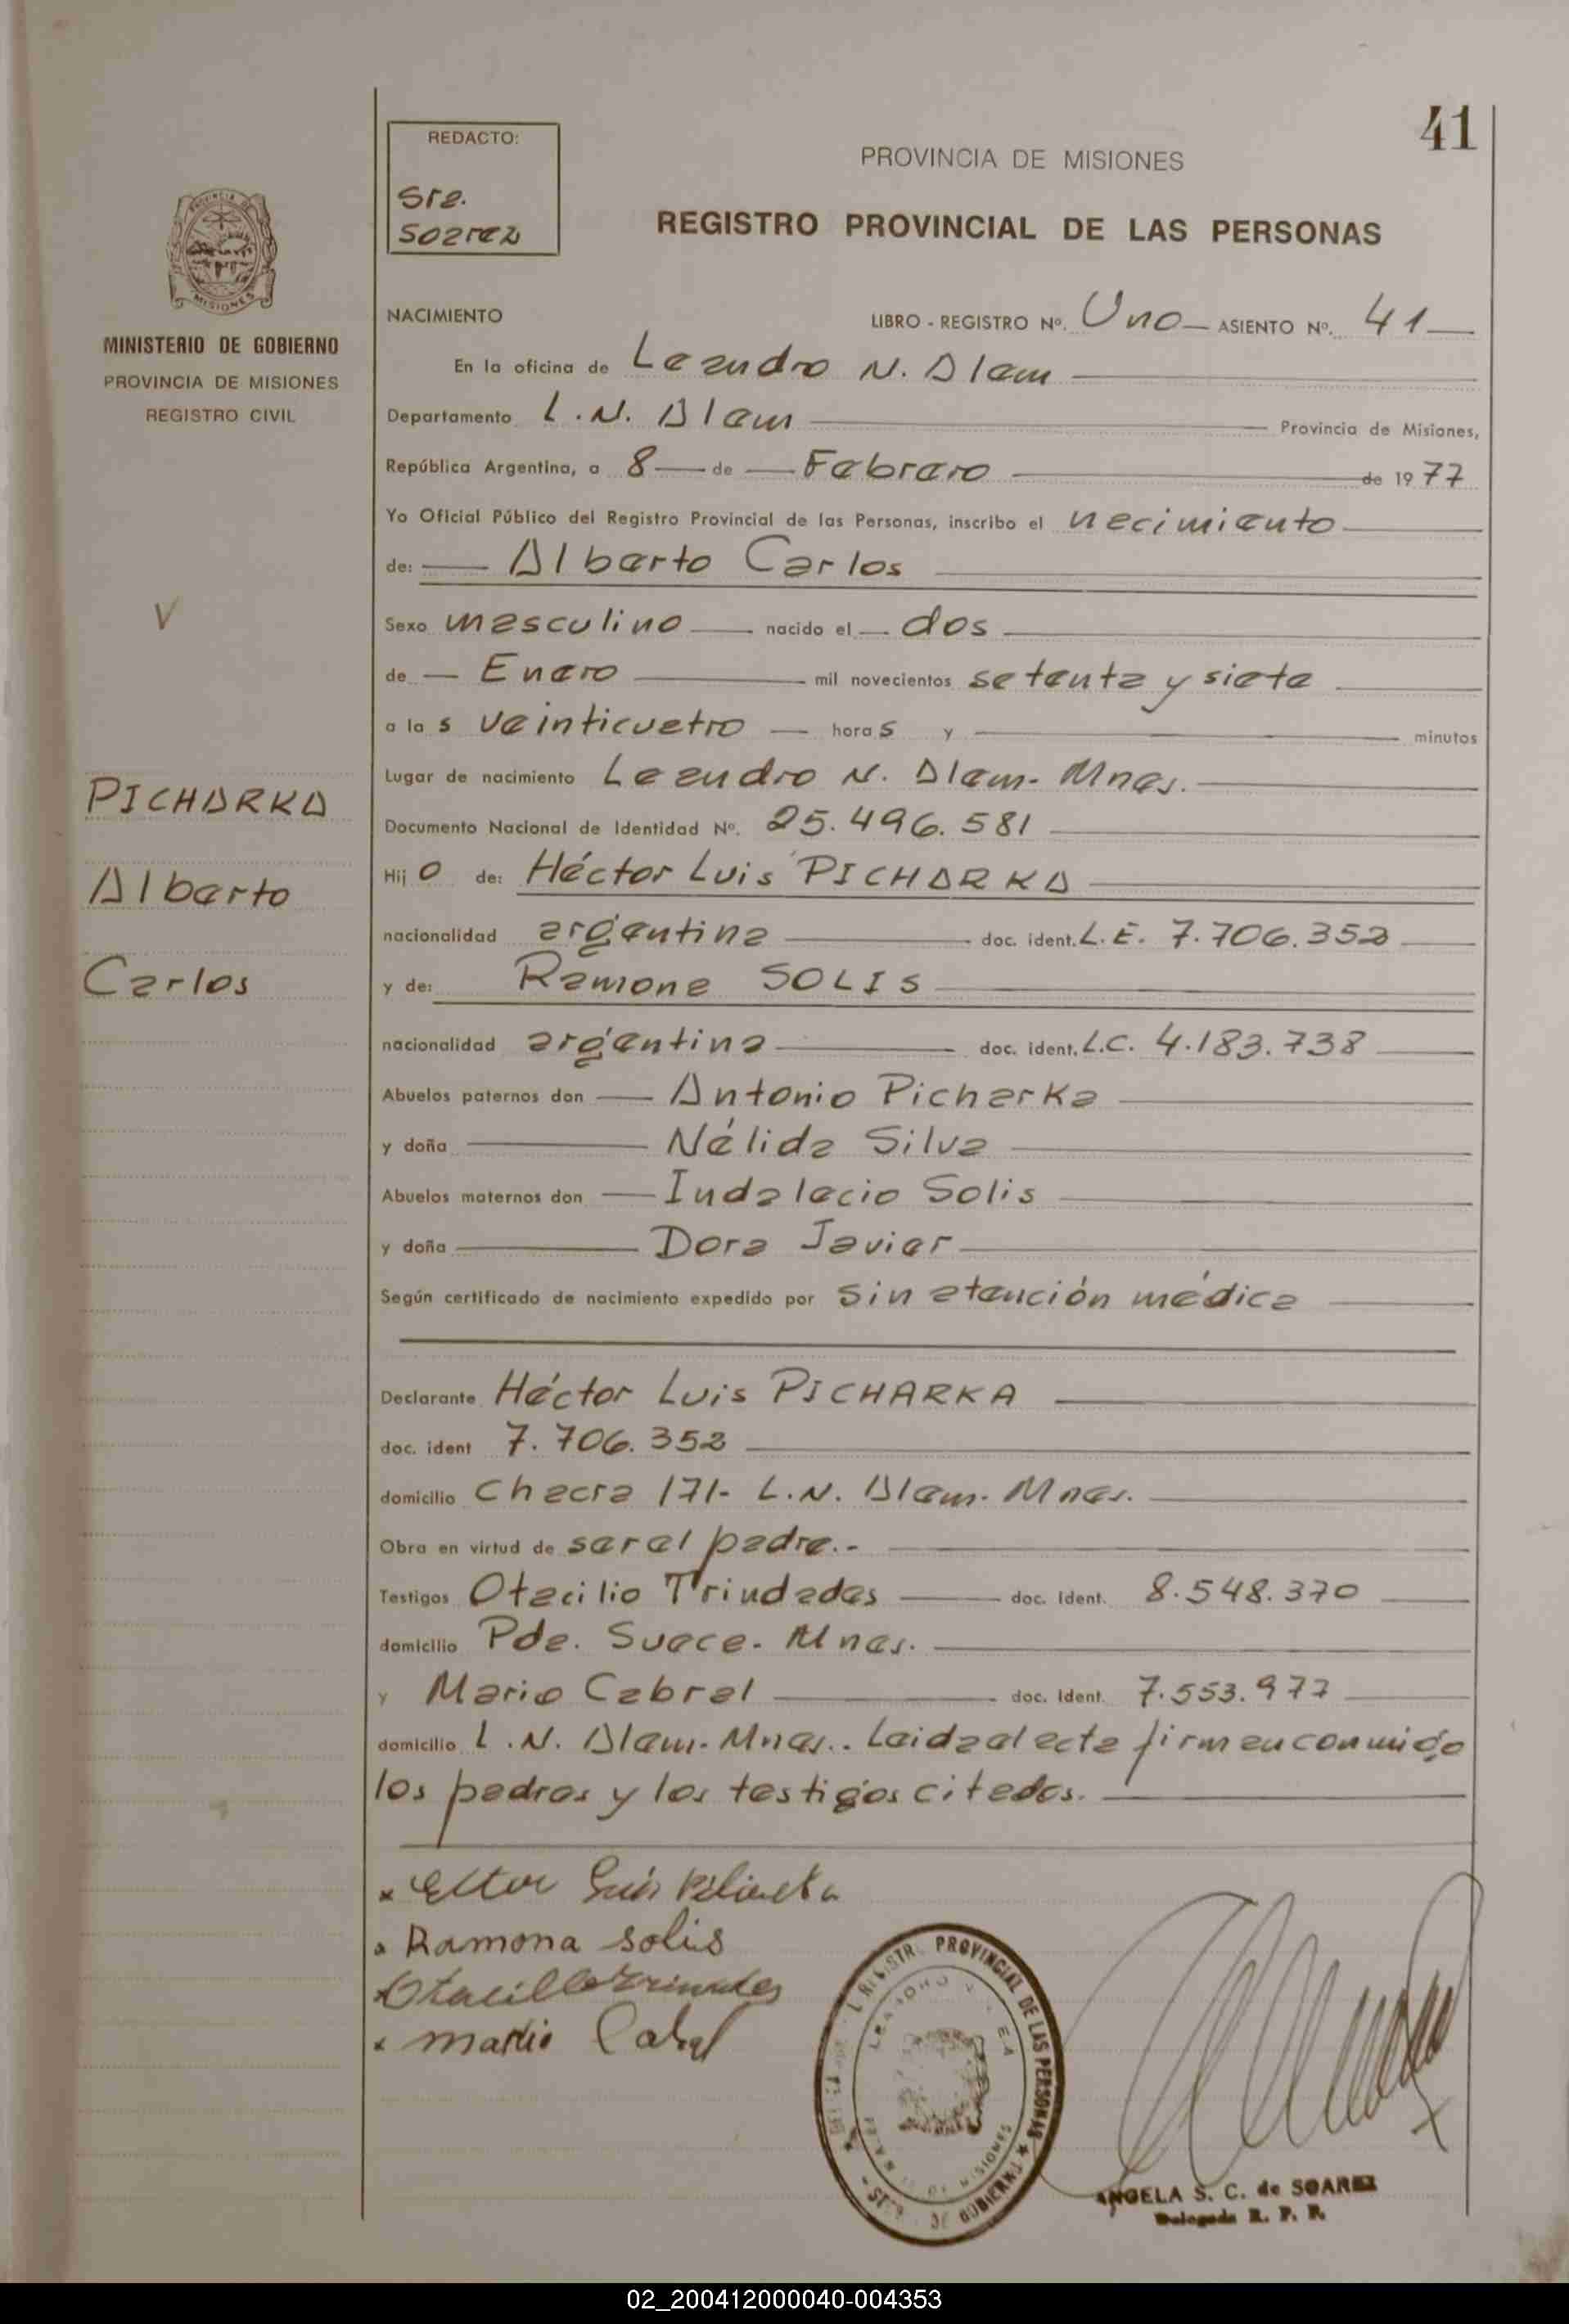 41
REDACTO:
Sra.
Soarez
PROVINCIA DE MISIONES
REGISTRO PROVINCIAL DE LAS PERSONAS
MISIONES
MINISTERIO DE GOBIERNO
PROVINCIA DE MISIONES
REGISTRO CIVIL
NACIMIENTO
LIBRO - REGISTRO Nº. Uno ASIENTO Nº. 41
En la oficina de Leandro N. Alem
Departamento L.N. Alem Provincia de Misiones,
República Argentina, a 8 de Febrero de 1977
Yo Oficial Público del Registro Provincial de las Personas, inscribo el nacimiento
de: Alberto Carlos
V
Sexo masculino nacido el dos
de Enero mil novecientos setenta y siete
a las veinticuatro horas y minutos
Lugar de nacimiento Leandro N. Alem- Mnes.
PICHARKA
Alberto
Carlos
Documento Nacional de Identidad Nº. 25.496.581
Hijo de: Héctor Luis PICHARKA
nacionalidad argentina doc. ident. L.E. 7.706.352
y de: Ramona SOLIS
nacionalidad argentina doc. ident. L.C. 4.183.738
Abuelos paternos don Antonio Picharka
y doña Nélida Silva
Abuelos maternos don Indalecio Solis
y doña Dora Javier
Según certificado de nacimiento expedido por sin atención médica
Declarante Héctor Luis PICHARKA
doc. ident 7.706.352
domicilio Chacra 171- L.N. Alem- Mnes.
Obra en virtud de ser el padre.-
Testigos Otacilio Trindades doc. Ident. 8.548.370
domicilio Pda. Sueca- Mnes.
y Mario Cabral doc. Ident. 7.553.977
domicilio L.N. Alem- Mnes.. Leida el acta firman conmigo
los padres y los testigos citados.
Ramona solis
mario Cabral
REGISTR. PROVINCIAL DE LAS PERSONAS
DE GOBIERNO
MISIONES
ANGELA S. C. de SOAREZ
Delegada R. P. P.
02_200412000040-004353